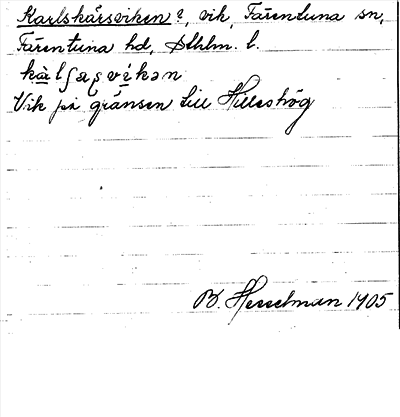 Karlskärsviken?, vik, Färentuna sn,
Färentuna hd, Sthlm. l.
kàlʃæʂvíkən
Vik på gränsen till Hilleshög
B. Hesselman 1905